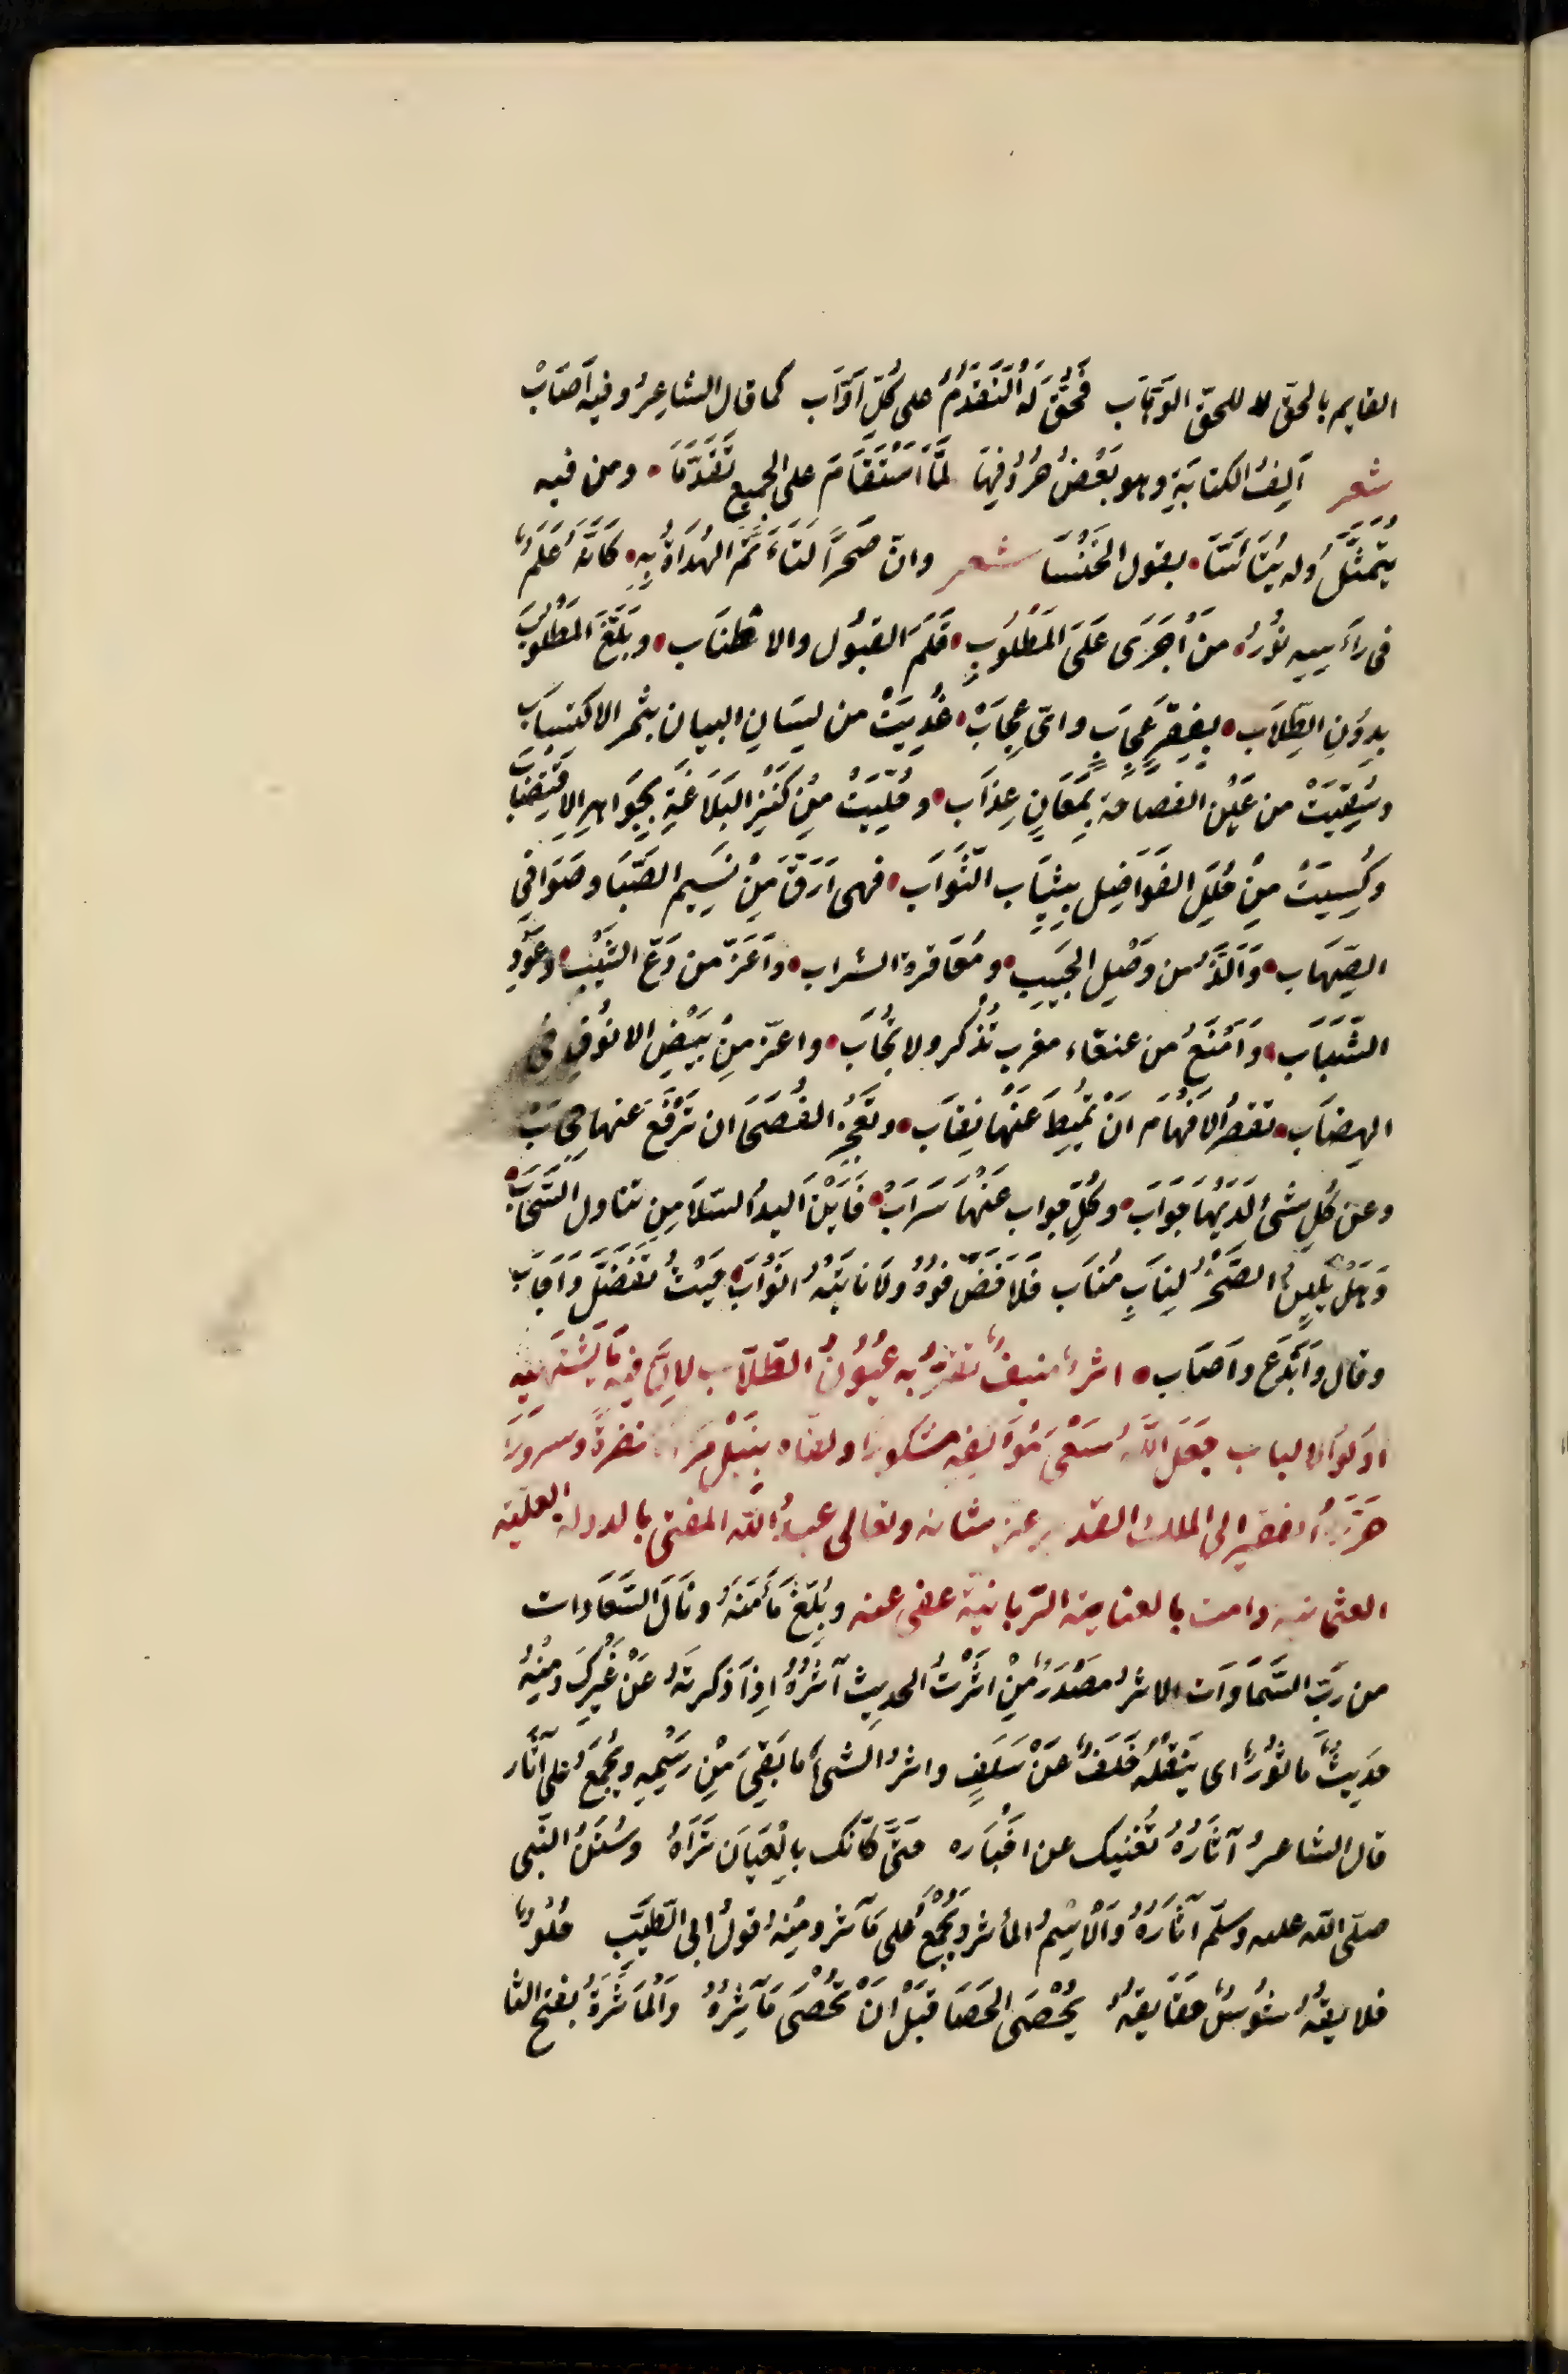 القايم بالحق لا للحق الوَهَّاب فَحُقَّ لَهُ التَّقَدُّمُ على كُلِّ أَوَّاب كما قال الشاعِرُ وفيه اَصَابْ
شعر اَلِفُ الكتابَةِ وهو بَعْضُ حُرُوفِهَا لَمَّا اسْتَقَامَ على الجميعِ تَقَدَّمَا • ومن فيه
يُتَمَثَّلُ وله يُتَائَتَّا • بقول الخَنْسَا شعر وانّ صَخرًا لَتَاءَتَمّ الهُدَاةُ بِهِ • كَاَنَّهُ عَلَمٌ
فى رَاْسِهِ نُورٌ • مَنْ اَجرَى عَلَى المَطْلُوبِ • قَلَمَ القَبُول والاطنَاب • وبَلَّغَ المَطْلُوبَ
بِدُونِ الطِلَاب • بِفِقَرِ عُجَابٍ واىّ عِجَابْ • غُذِيَتْ من لِسَانِ البيان بثمر الاكتِسَاب
وسُقِيَتْ من عَيْنِ الفصاحة بِمَعَانٍ عِذَاب • وحُلِّيَتْ مِنْ كَنْزِ البَلَاغَةِ بِجَوَاهِرِ الاقتِضَاب
وكُسِيَتْ مِنْ حُلَلِ الفَوَاضِل بِثِيَابِ الثَّوَاب • فهى اَرَقّ مِنْ نَسِيم الصَّبَا وصَوَافِى
الصِهَاب • وَاَلَذّ من وَصْلِ الحَبِيبِ • ومُعَاقرة الشراب • واَعَزّ من وَدَع الشَيْبِ • وعَوْدِ
الشَّبَاب • وَاَمْنَعُ من عنقاء مغرب تُذكر ولا تُجَاب • واعزّ مِنْ بَيْضِ الانُوقِ فى
الهِضَاب • تقصُرُ الافْهَام اَنْ تُمِيطَ عَنْهَا نِقَاب • وتَعجِزُ الفُصَحَا ان تَرْفَعَ عنها حِجَابْ
وعن كُلِّ شىء لَدَيْهَا جوَاب • وكُلِّ جواب عَنْهَا سَرَابْ • فَاَيْنَ اليدُ السَلَا مِن تناول السَّحَابْ
وَهَلْ يَلِينُ الصَّخْرُ لِنَابٍ مُنَاب فَلَا فَضّ فُوهُ وَلَا نَابَتْهُ انْوَاب • حَيْثُ تَفَضَّلَ وَاَجَاب
وقال وَاَبْدَع واَصَاب • اثرٌ منيفٌ تقرُّ به عُيُونُ الطلّاب لاحَ فيه مَا يَشْتَهِيهِ
اُولُوا الالباب جَعَلَ اللهُ سَعْىَ مُؤَلِّفِه مشكورا ولقّاه بِنَيْلِ نضرةً وسرورًا
حَرَّرَهُ الفقير الى الملك القدير عز شانه وتعالى عبدُ الله المفتى بالدولة العليّه
العثمانيه دامت بالعنايه الرّبانيّة عفى عنه وبُلِّغَ مَأمَنَهُ ونَالَ السَّعَادات
من رَبّ السَّمَاوَات الاثرُ مَصْدَرٌ مِنْ اثَرْتُ الحديث آثُرُهُ اِذَا ذكرتَهُ عَنْ غَيْرِكَ ومِنْهُ
حَدِيثٌ مَاثُورٌ اى يَنْقُلُهُ خَلَفٌ عَنْ سَلَفٍ واثرُ الشىء ما بَقِىَ مِنْ رَسْمِهِ ويُجْمَعُ على آثَار
قال الشاعرُ آثَارُهُ تُغْنِيك عن اخْبَاره حَتَّى كَاَنَّك بِالْعِيَان تَرَاهُ وسُنَنُ النّبى
صلّى الله عليه وسلّم آثَارُهُ وَالْاِسْمُ المأثر ويُجْمَعُ على مَآثر ومِنْهُ قولُ ابى الطَيِّبِ حُلْوٌ
خلايقُهُ شُوسٌ حَقَايِقُهُ يُحْصَى الحَصَا قَبْلَ اَنْ تُحْصَى مَآثِرُهُ وَالْمَأثَرَةُ بفتح الثا